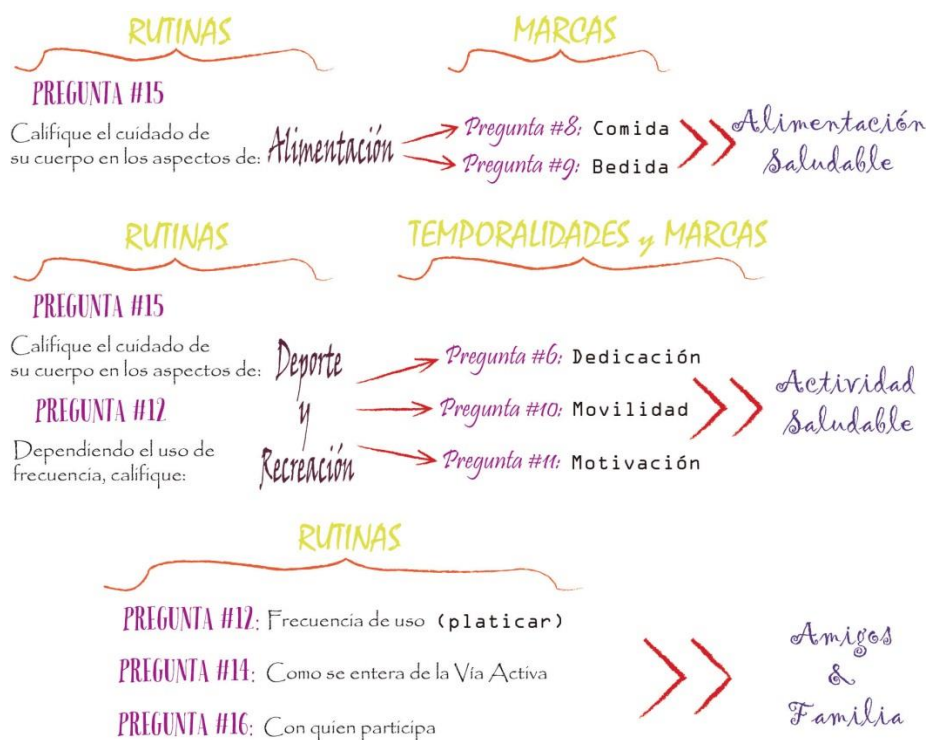 RUTINAS
MARCAS
PREGUNTA #15
Califique el cuidado de
su cuerpo en los aspectos de:
Alimentación
Pregunta #8: Comida
Pregunta #9: Bedida
Alimentación
Saludable
RUTINAS
TEMPORALIDADES y MARCAS
PREGUNTA #15
Califique el cuidado de
su cuerpo en los aspectos de:
PREGUNTA #12
Dependiendo el uso de
frecuencia, califique:
Deporte
y
Recreación
Pregunta #6: Dedicación
Pregunta #10: Movilidad
Pregunta #11: Motivación
Actividad
Saludable
RUTINAS
PREGUNTA #12: Frecuencia de uso (platicar)
PREGUNTA #14: Como se entera de la Vía Activa
PREGUNTA #16: Con quien participa
Amigos
&
Familia